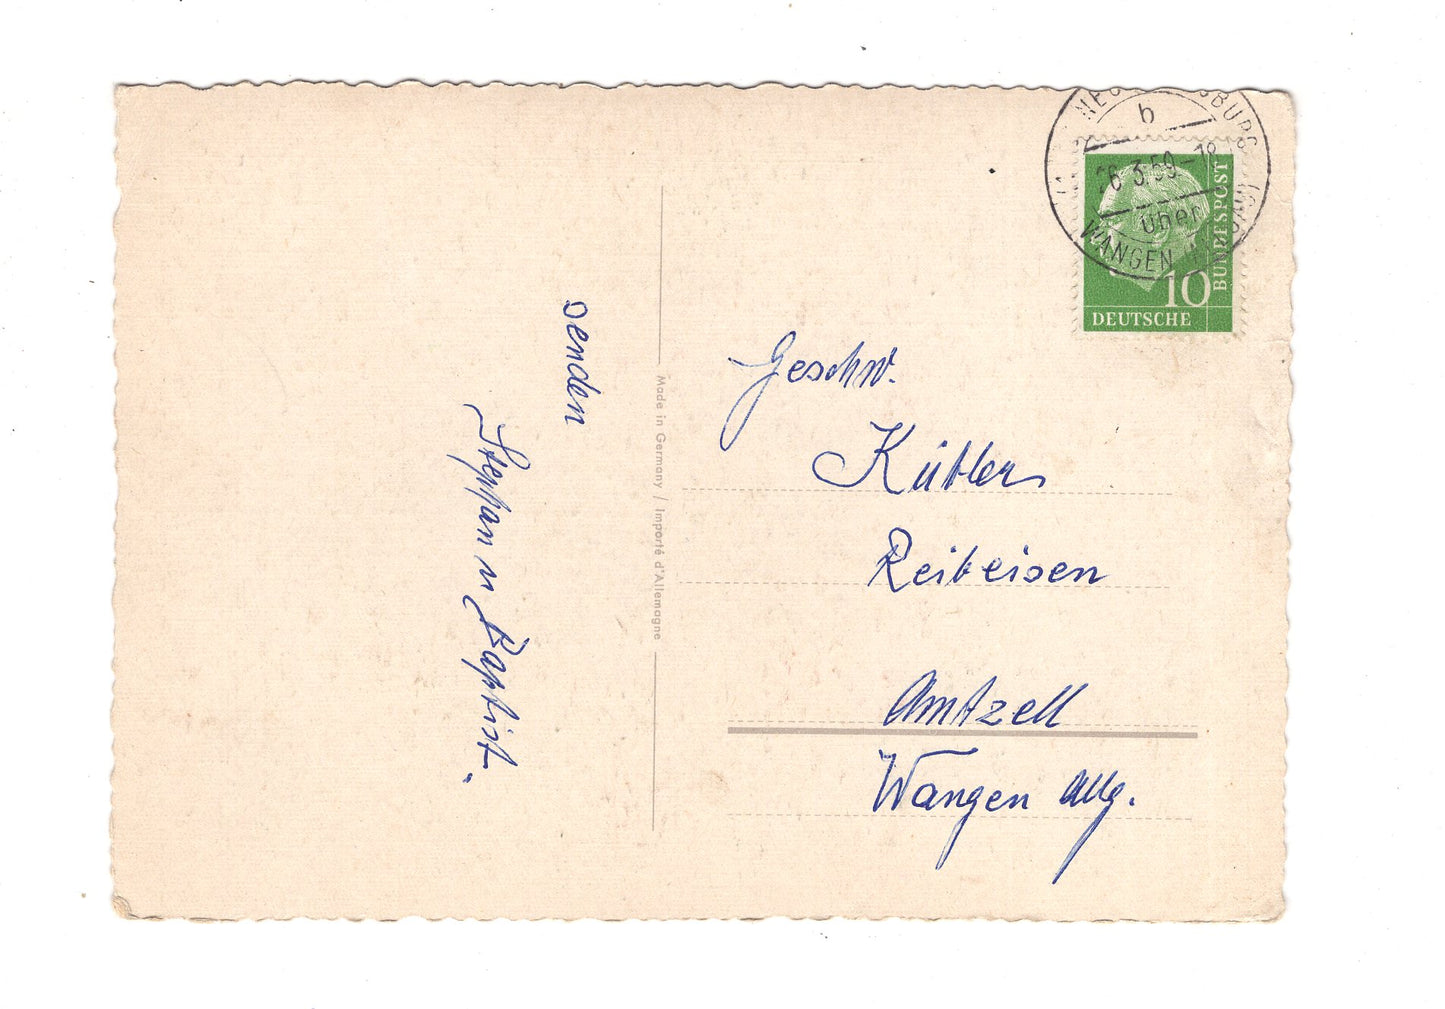 senden
Stephan u Baptist.
Made in Germany / Importé d'Allemagne
b
26.3.59-18
über
WANGEN
10
DEUTSCHE
BUNDESPOST
Geschw.
Kübler
Reibeisen
Amtzell
Wangen Allg.